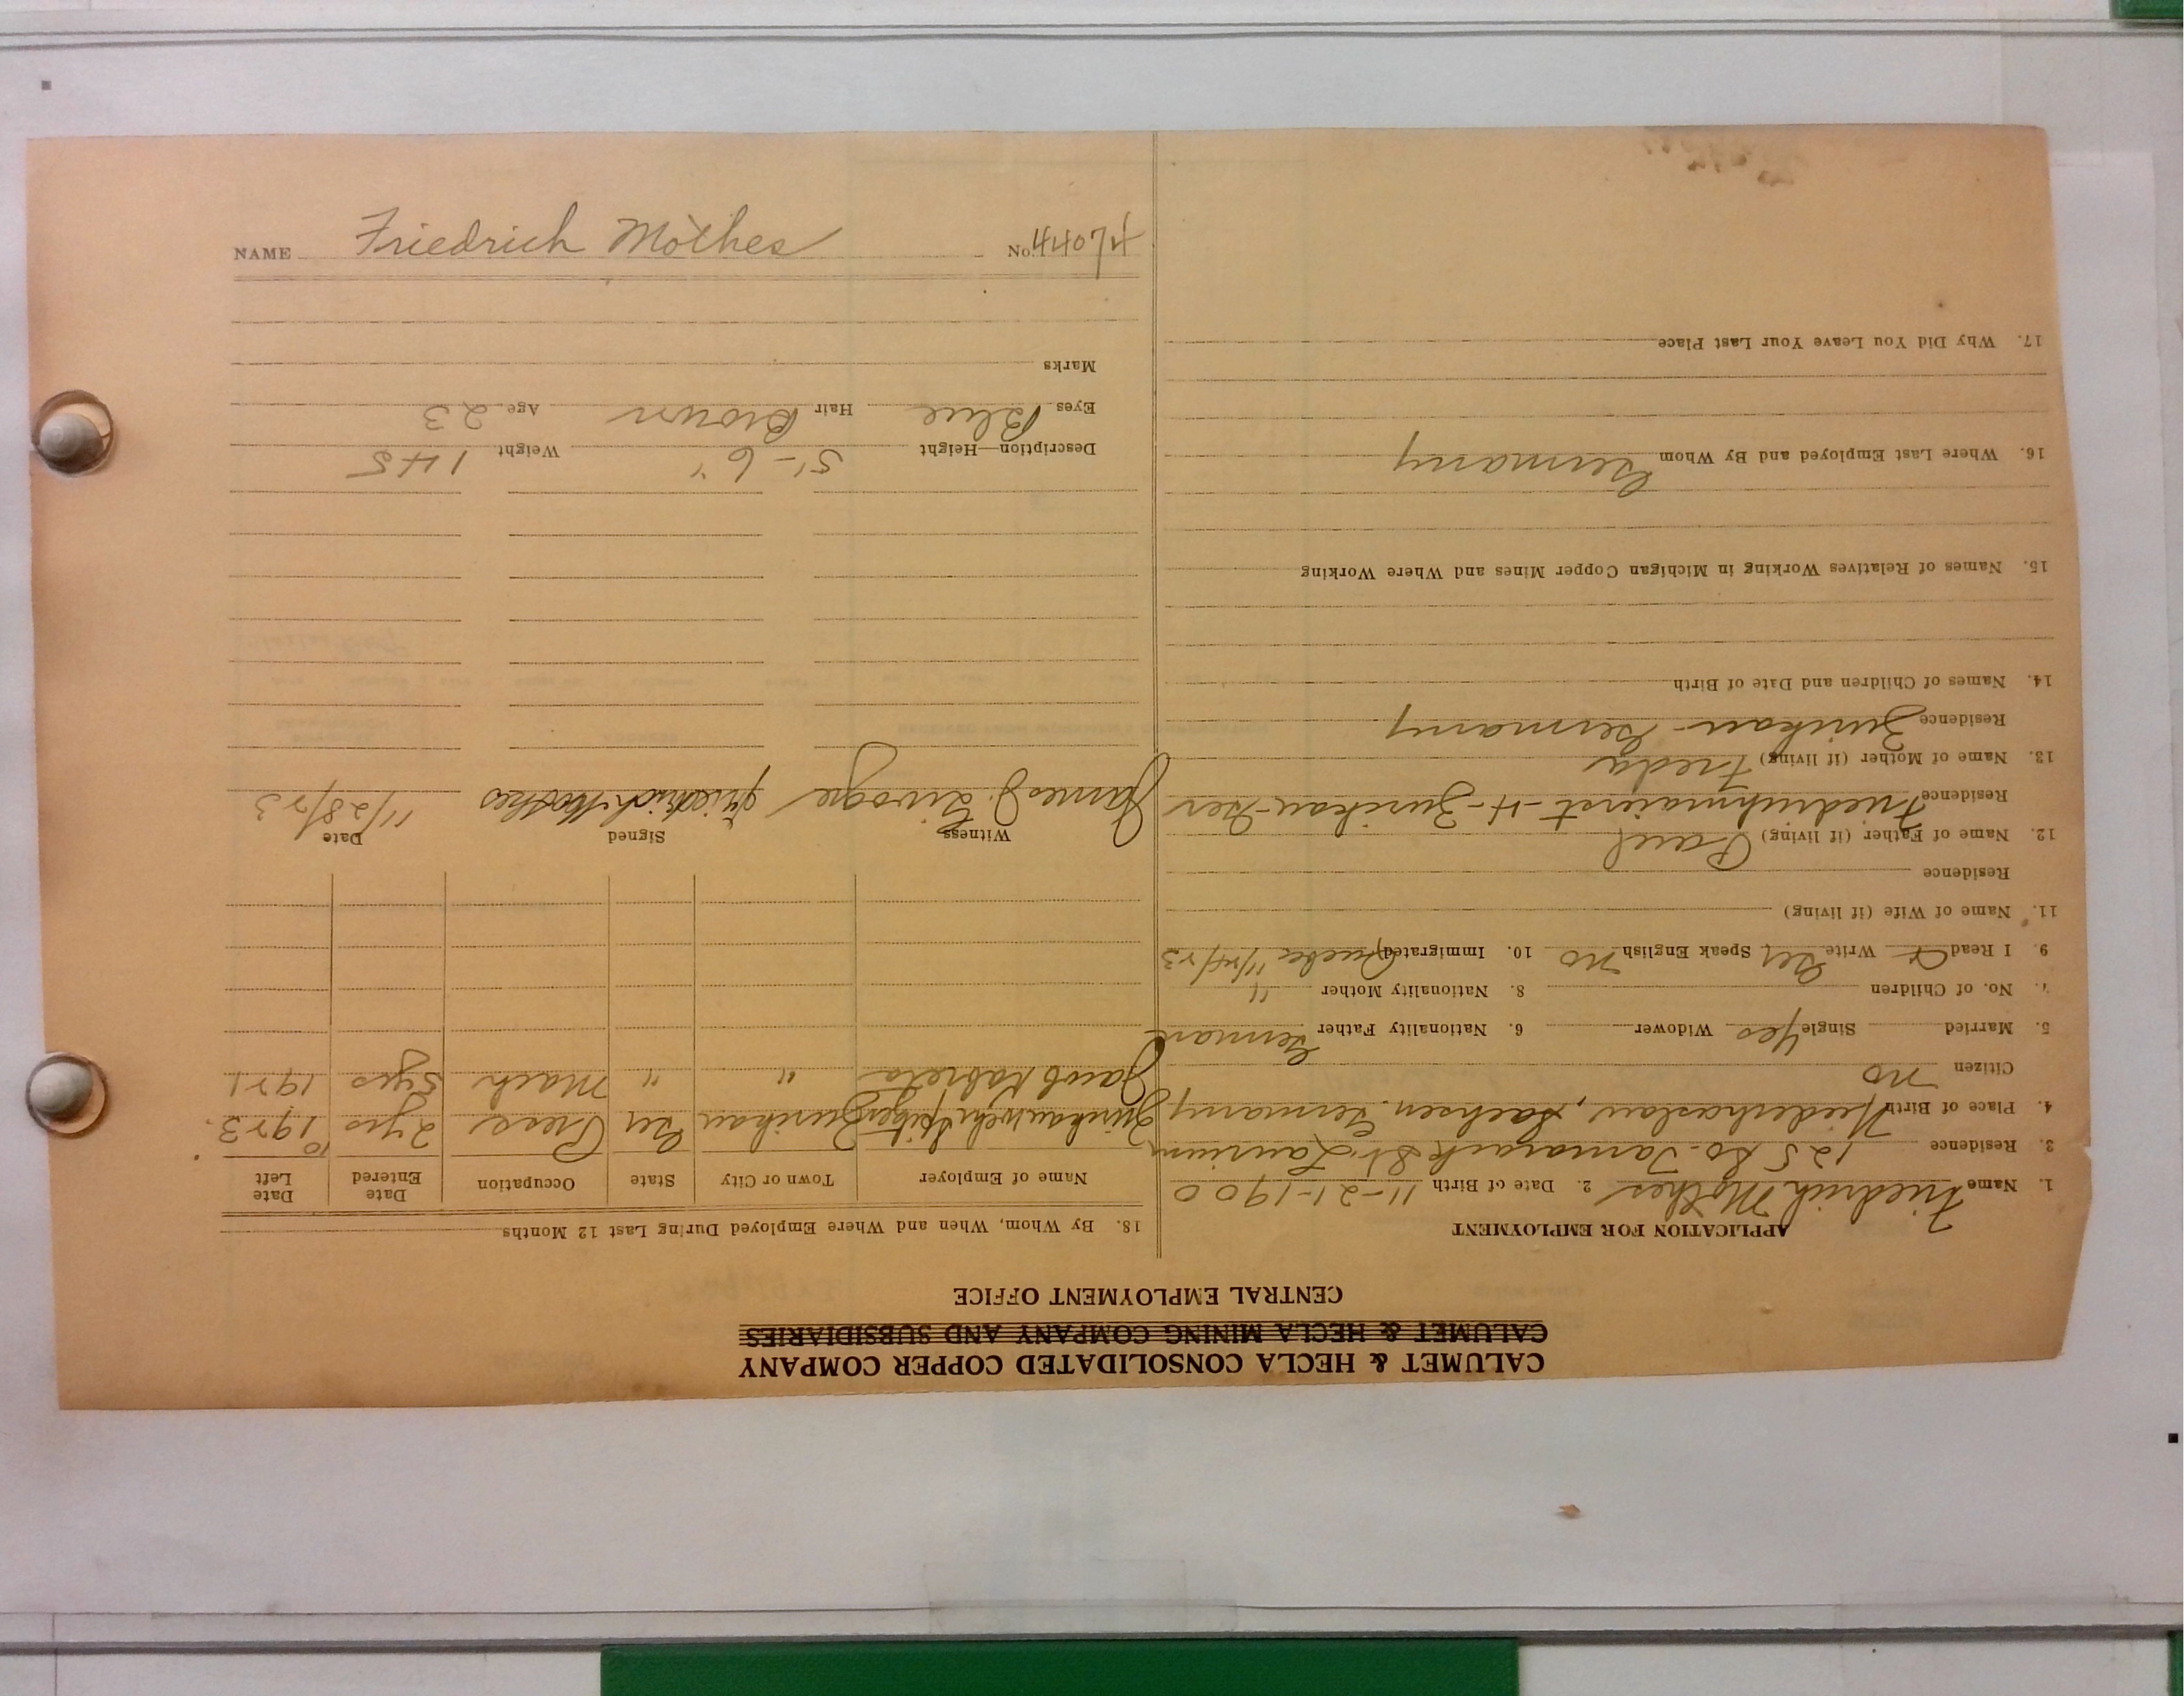 CALUMET & HECLA CONSOLIDATED COPPER COMPANY
CALUMET & HECLA MINING COMPANY AND SUBSIDIARIES
CENTRAL EMPLOYMENT OFFICE
APPLICATION FOR EMPLOYMENT
1. Name Friedrich Mothes 2. Date of Birth 11-21-1900
3. Residence 125 So. Tamarack St. Laurium
4. Place of Birth Niederhaslau, Sachsen. Germany
Citizen no
5. Married Single Yes Widower 6. Nationality Father German
7. No. of Children 8. Nationality Mother "
9. I Read Write Ger Speak English no 10. Immigrated
11. Name of Wife (if living)
Residence
12. Name of Father (if living) Paul
Residence
13. Name of Mother (if living) Freda
Residence Zwikau - Germany
14. Names of Children and Date of Birth
15. Names of Relatives Working in Michigan Copper Mines and Where Working
16. Where Last Employed and By Whom Germany
17. Why Did You Leave Your Last Place
18. By Whom, When and Where Employed During Last 12 Months
Name of Employer Town or City State Occupation Date Entered Date Left
Zwikau Ger 2 yrs 10 1923.
Jacob " " Mach 5 yrs 1921
Witness Signed Date
James J. Friedrich Mothes 11/28/23
Description—Height 5'-6" Weight 145
Eyes Blue Hair Brown Age 23
Marks
NAME Friedrich Mothes No. 44074